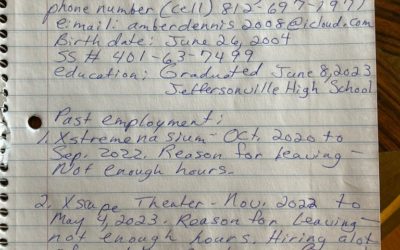 phone number (cell) 812-697-1971
e-mail: amberdennis2008@icloud.com
Birth date: June 26, 2004
SS # 401-63-7499
education: Graduated June 8, 2023
Jeffersonville High School
Past employment:
1. Xstremenasium - Oct. 2020 to
Sep. 2022. Reason for leaving -
Not enough hours.
2. Xscape Theater - Nov. 2022 to
May 4, 2023. Reason for Leaving -
not enough hours. Hiring alot